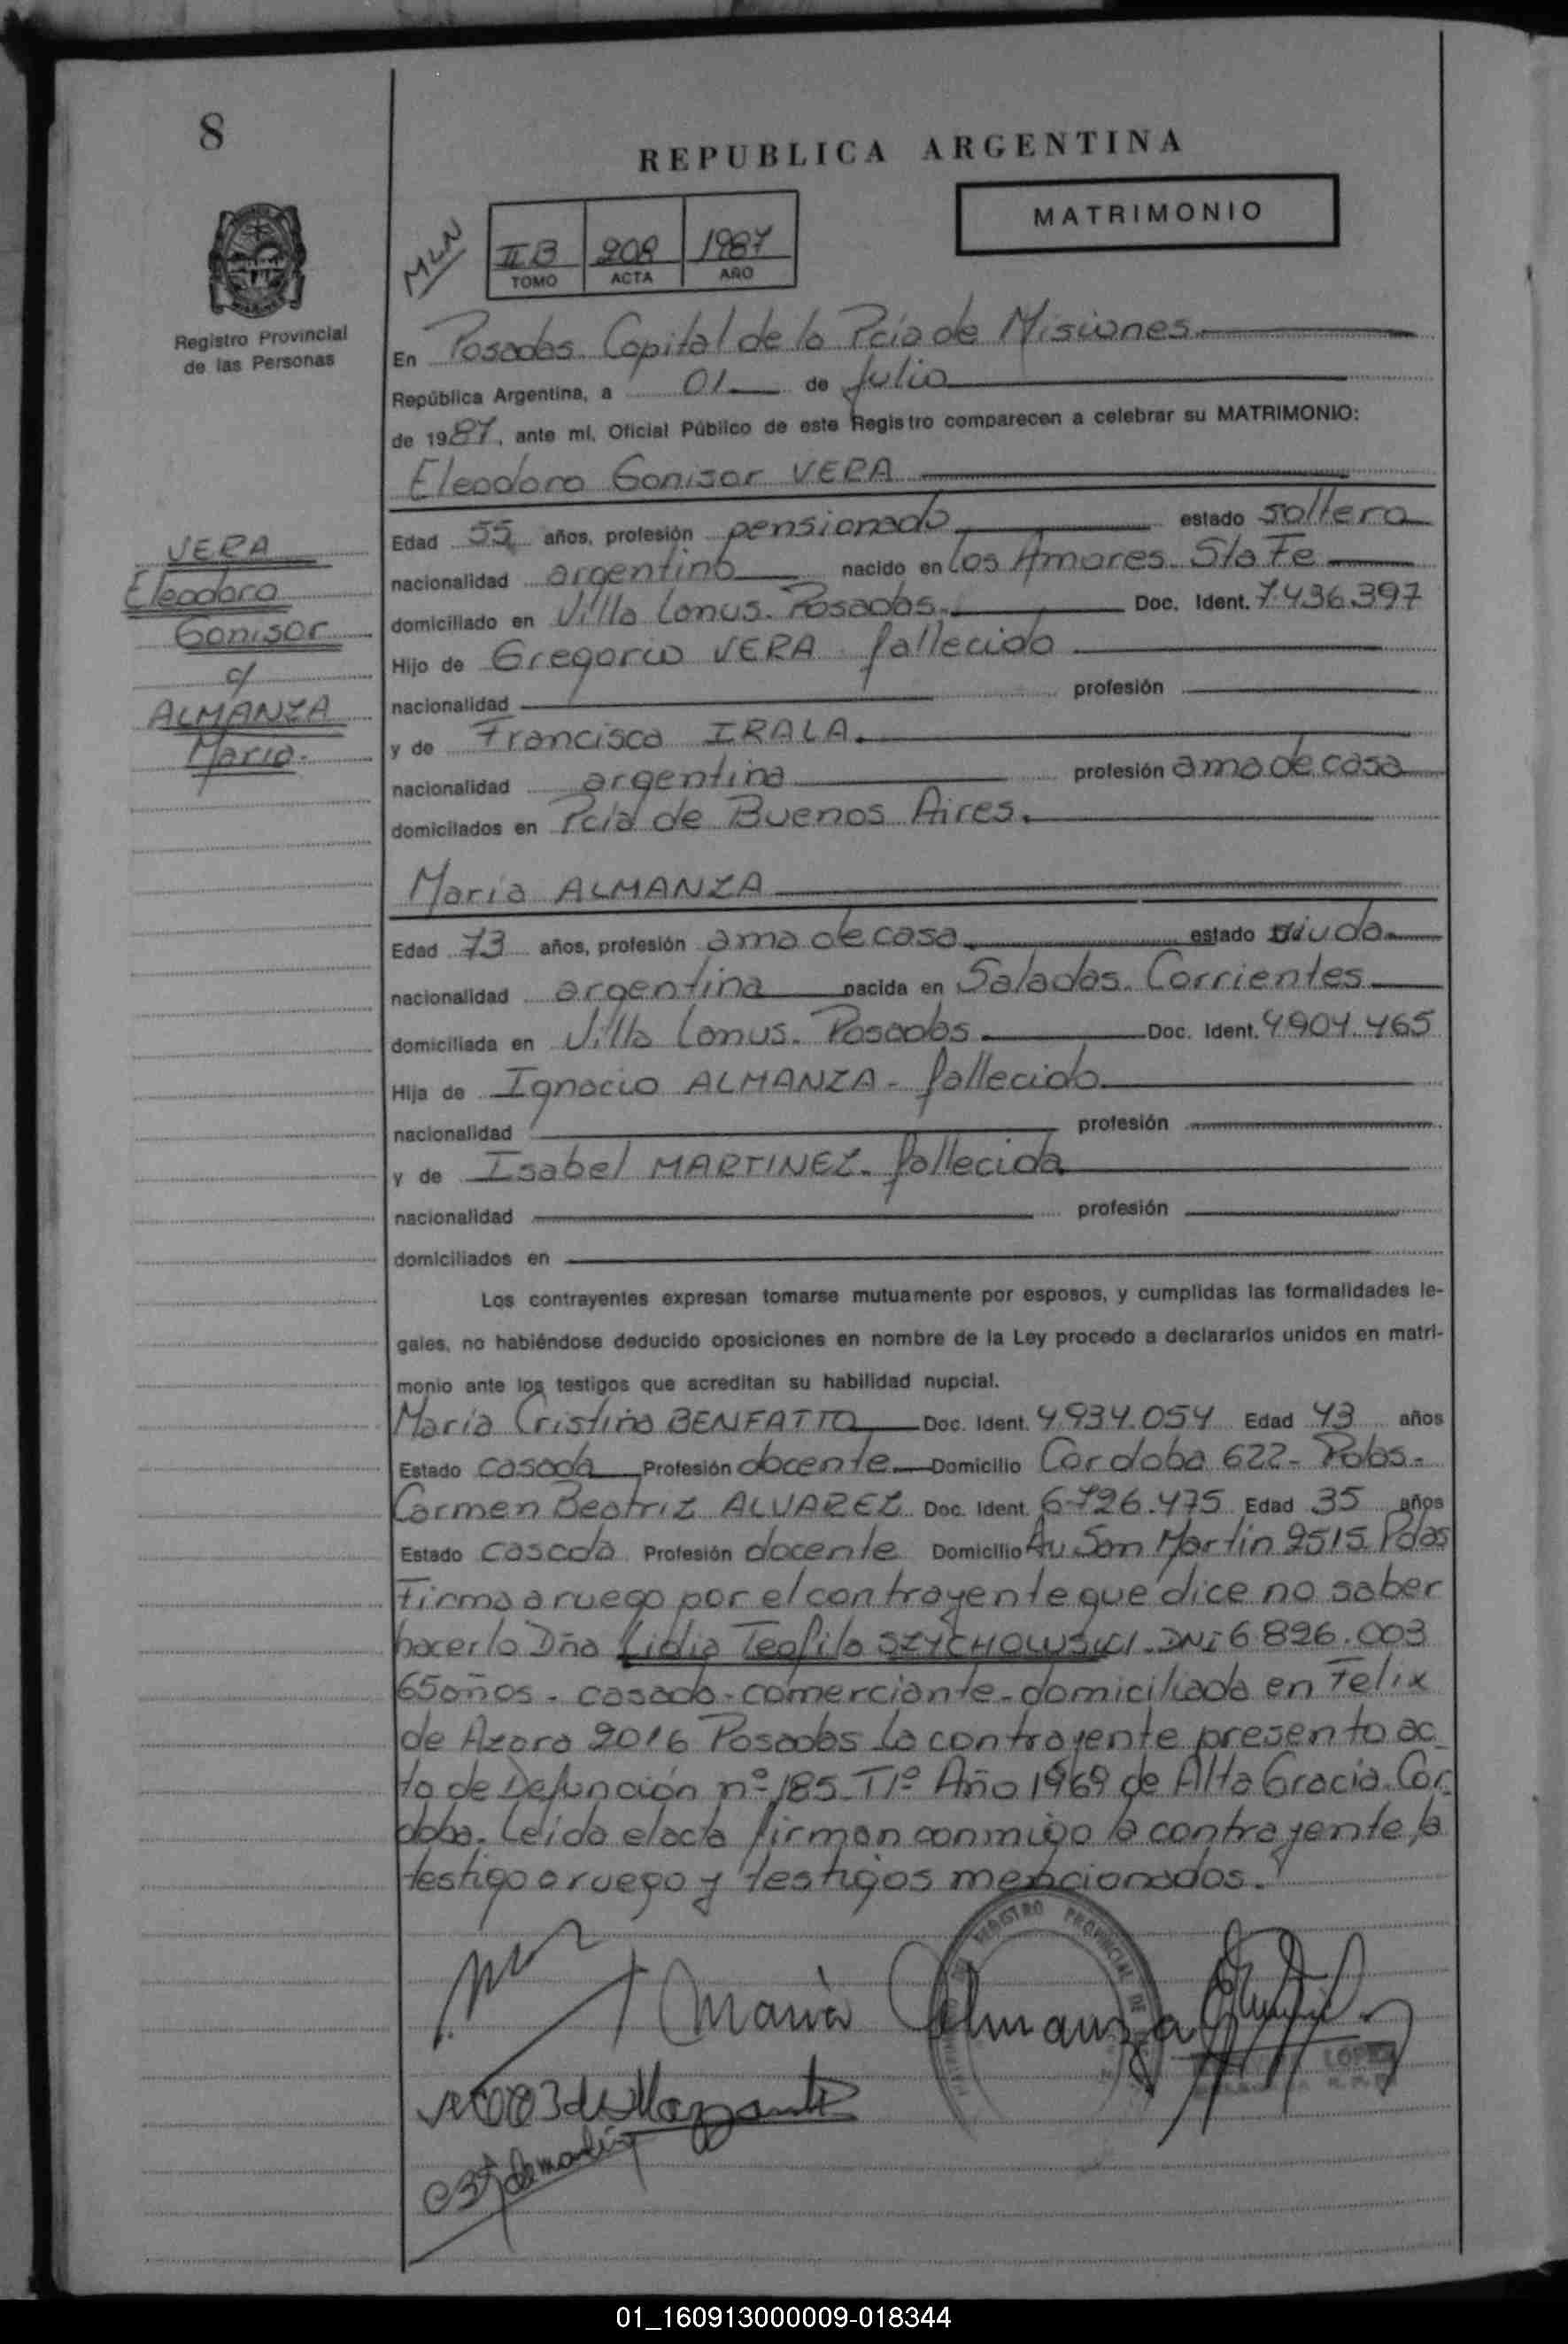 8
REPUBLICA ARGENTINA
MATRIMONIO
MLN
II B 208 1987
TOMO ACTA AÑO
Registro Provincial
de las Personas
En Posadas. Capital de la Pcia de Misiones
República Argentina, a 01 de Julio
de 1987, ante mí, Oficial Público de este Registro comparecen a celebrar su MATRIMONIO:
Eleodoro Gonisor VERA
VERA
Eleodoro
Gonisor
c/
ALMANZA
Maria.
Edad 55 años, profesión pensionado estado soltero
nacionalidad argentino nacido en Los Amores. Sta Fe
domiciliado en Villa Lanus. Posadas. Doc. Ident. 7.436.397
Hijo de Gregorio VERA - fallecido
nacionalidad profesión
y de Francisca IRALA.
nacionalidad argentina profesión ama de casa
domiciliados en Pcia de Buenos Aires.
Maria ALMANZA
Edad 73 años, profesión ama de casa. estado viuda
nacionalidad argentina nacida en Saladas. Corrientes
domiciliada en Villa Lanus. Posadas. Doc. Ident. 4.904.465
Hija de Ignacio ALMANZA - fallecido
nacionalidad profesión
y de Isabel MARTINEZ. fallecida
nacionalidad profesión
domiciliados en
Los contrayentes expresan tomarse mutuamente por esposos, y cumplidas las formalidades le-
gales, no habiéndose deducido oposiciones en nombre de la Ley procedo a declararlos unidos en matri-
monio ante los testigos que acreditan su habilidad nupcial.
María Cristina BENFATTO Doc. Ident. 4.934.054 Edad 43 años
Estado casada Profesión docente Domicilio Cordoba 622 - Pdas.
Carmen Beatriz ALVAREZ Doc. Ident. 6.726.475 Edad 35 años
Estado casada Profesión docente Domicilio Av San Martin 2515 Pdas
Firma a ruego por el contrayente que dice no saber
hacerlo Dña Lidia Teofila SZYCHOWSKI. DNI 6.826.003
65 años - casada - comerciante - domiciliada en Felix
de Azara 2016 Posadas La contrayente presento ac
ta de Defunción nº 185 - T 1º Año 1969 de Alta Gracia. Cor
doba. Leida el acta firman conmigo la contrayente, la
testigo a ruego y testigos mencionados.
REGISTRO PROVINCIAL DE
María Almanza
LOPEZ
01_160913000009-018344